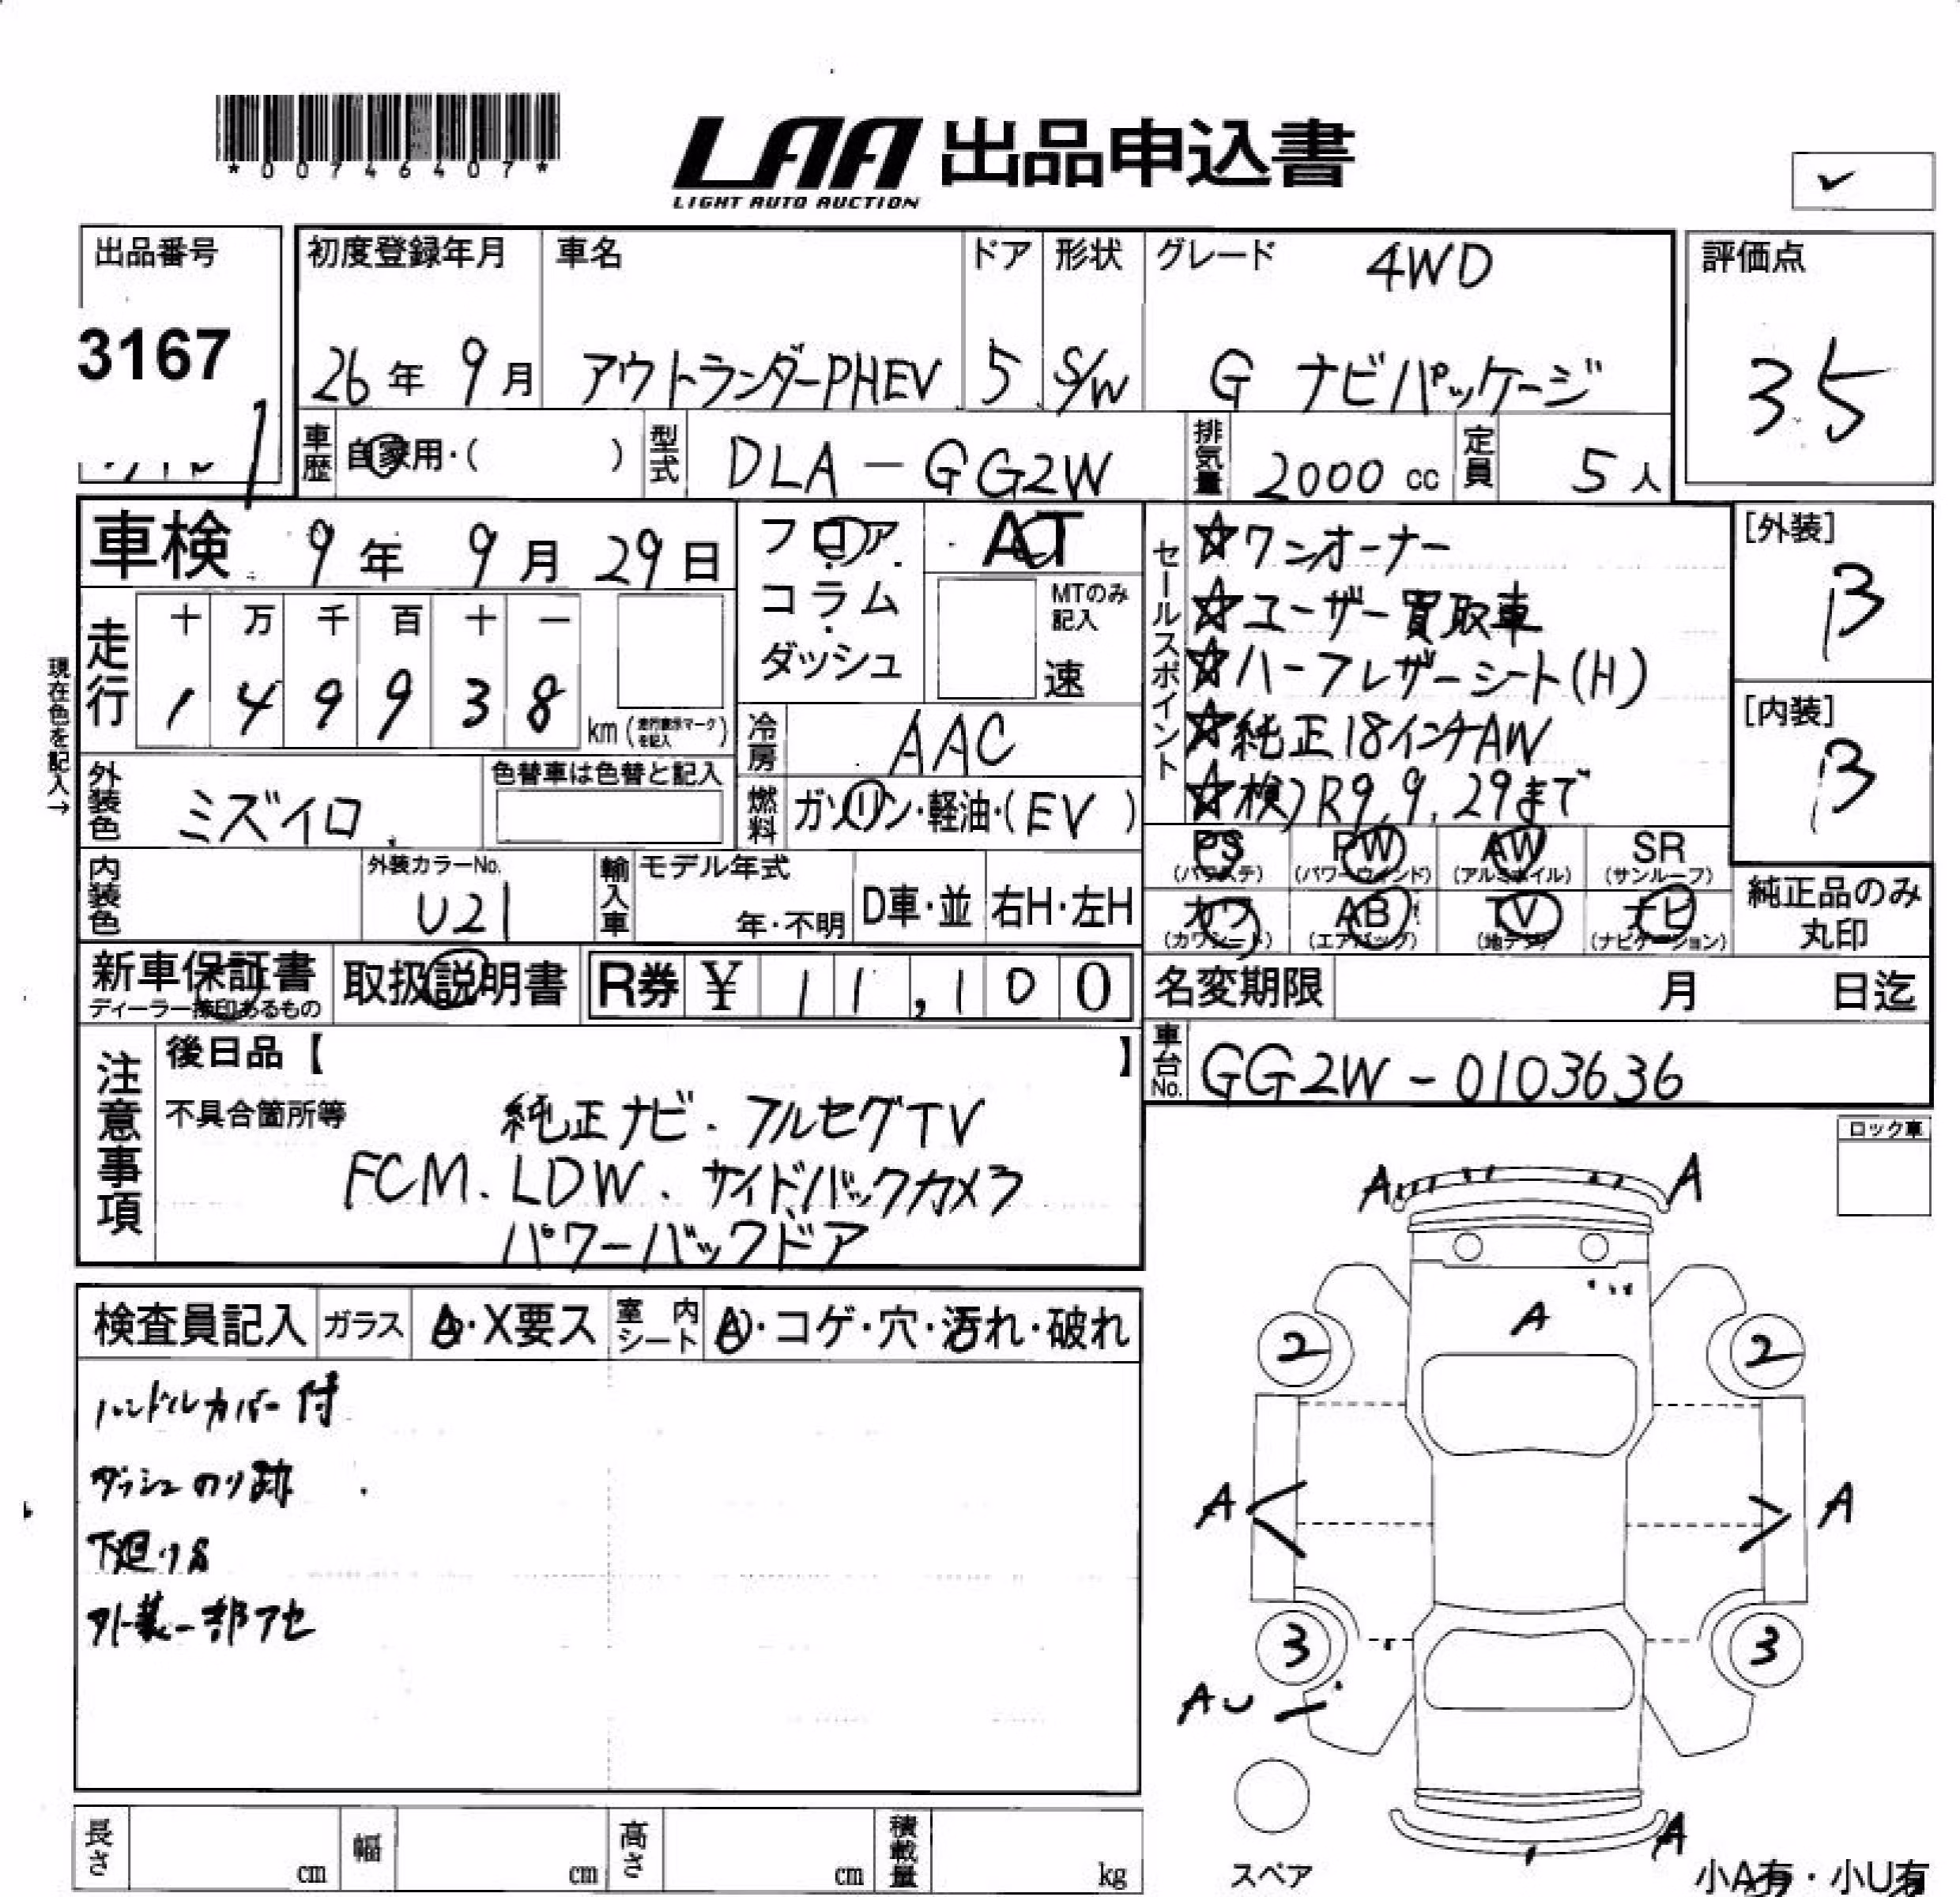 *00746407*
LAA 出品申込書
LIGHT AUTO AUCTION
✓
出品番号
3167
初度登録年月
26年 9月
車名
アウトランダーPHEV
ドア
5
形状
S/W
グレード 4WD
G ナビパッケージ
評価点
3.5
車歴 自家用・( )
型式 DLA-GG2W
排気量 2000 cc
定員 5人
車検 9年 9月 29日
現在色を記入→
走行
十 万 千 百 十 一
1 4 9 9 3 8
km (走行表示マークを記入)
フロア
コラム
ダッシュ
AT
MTのみ記入
速
冷房 AAC
燃料 ガソリン・軽油・(EV)
セールスポイント
☆ワンオーナー
☆ユーザー買取車
☆ハーフレザーシート(H)
☆純正18インチAW
☆検)R9.9.29まで
[外装]
B
[内装]
B
外装色 ミズイロ
色替車は色替と記入
内装色
外装カラーNo.
U21
輸入車
モデル年式
年・不明
D車・並
右H・左H
PS (パワステ)
PW (パワーウィンド)
AW (アルミホイル)
SR (サンルーフ)
カワ (カワシート)
AB (エアバッグ)
TV (地デジ)
ナビ (ナビゲーション)
純正品のみ
丸印
新車保証書
ディーラー捺印あるもの
取扱説明書
R券 ¥ 11,100
名変期限 月 日迄
車台No. GG2W-0103636
注意事項
後日品【 】
不具合箇所等
純正ナビ・フルセグTV
FCM. LDW. サイド/バックカメラ
パワーバックドア
ロック車
検査員記入
ガラス A・X要ス
室内シート A・コゲ・穴・汚れ・破れ
ハンドルカバー付
ダッシュのり跡
下廻りS
外装一部アセ
A A
A
2 2
A A
3 3
AU
A
スペア
小A有・小U有
長さ cm
幅 cm
高さ cm
積載量 kg